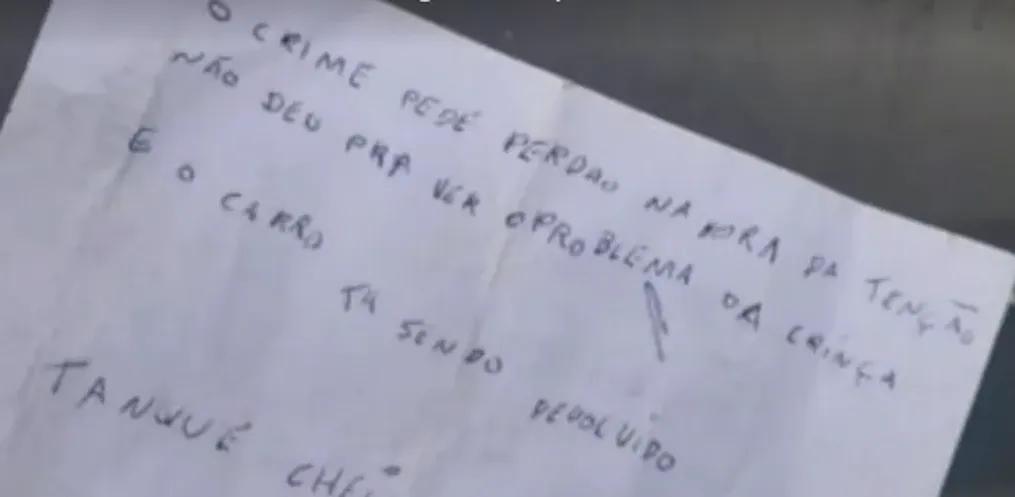 O CRIME PEDE PERDAO NA HORA DA TENÇÃO
NÃO DEU PRA VER O PROBLEMA DA CRINÇA
E O CARRO TÁ SENDO DEVOLVIDO
TANQUE